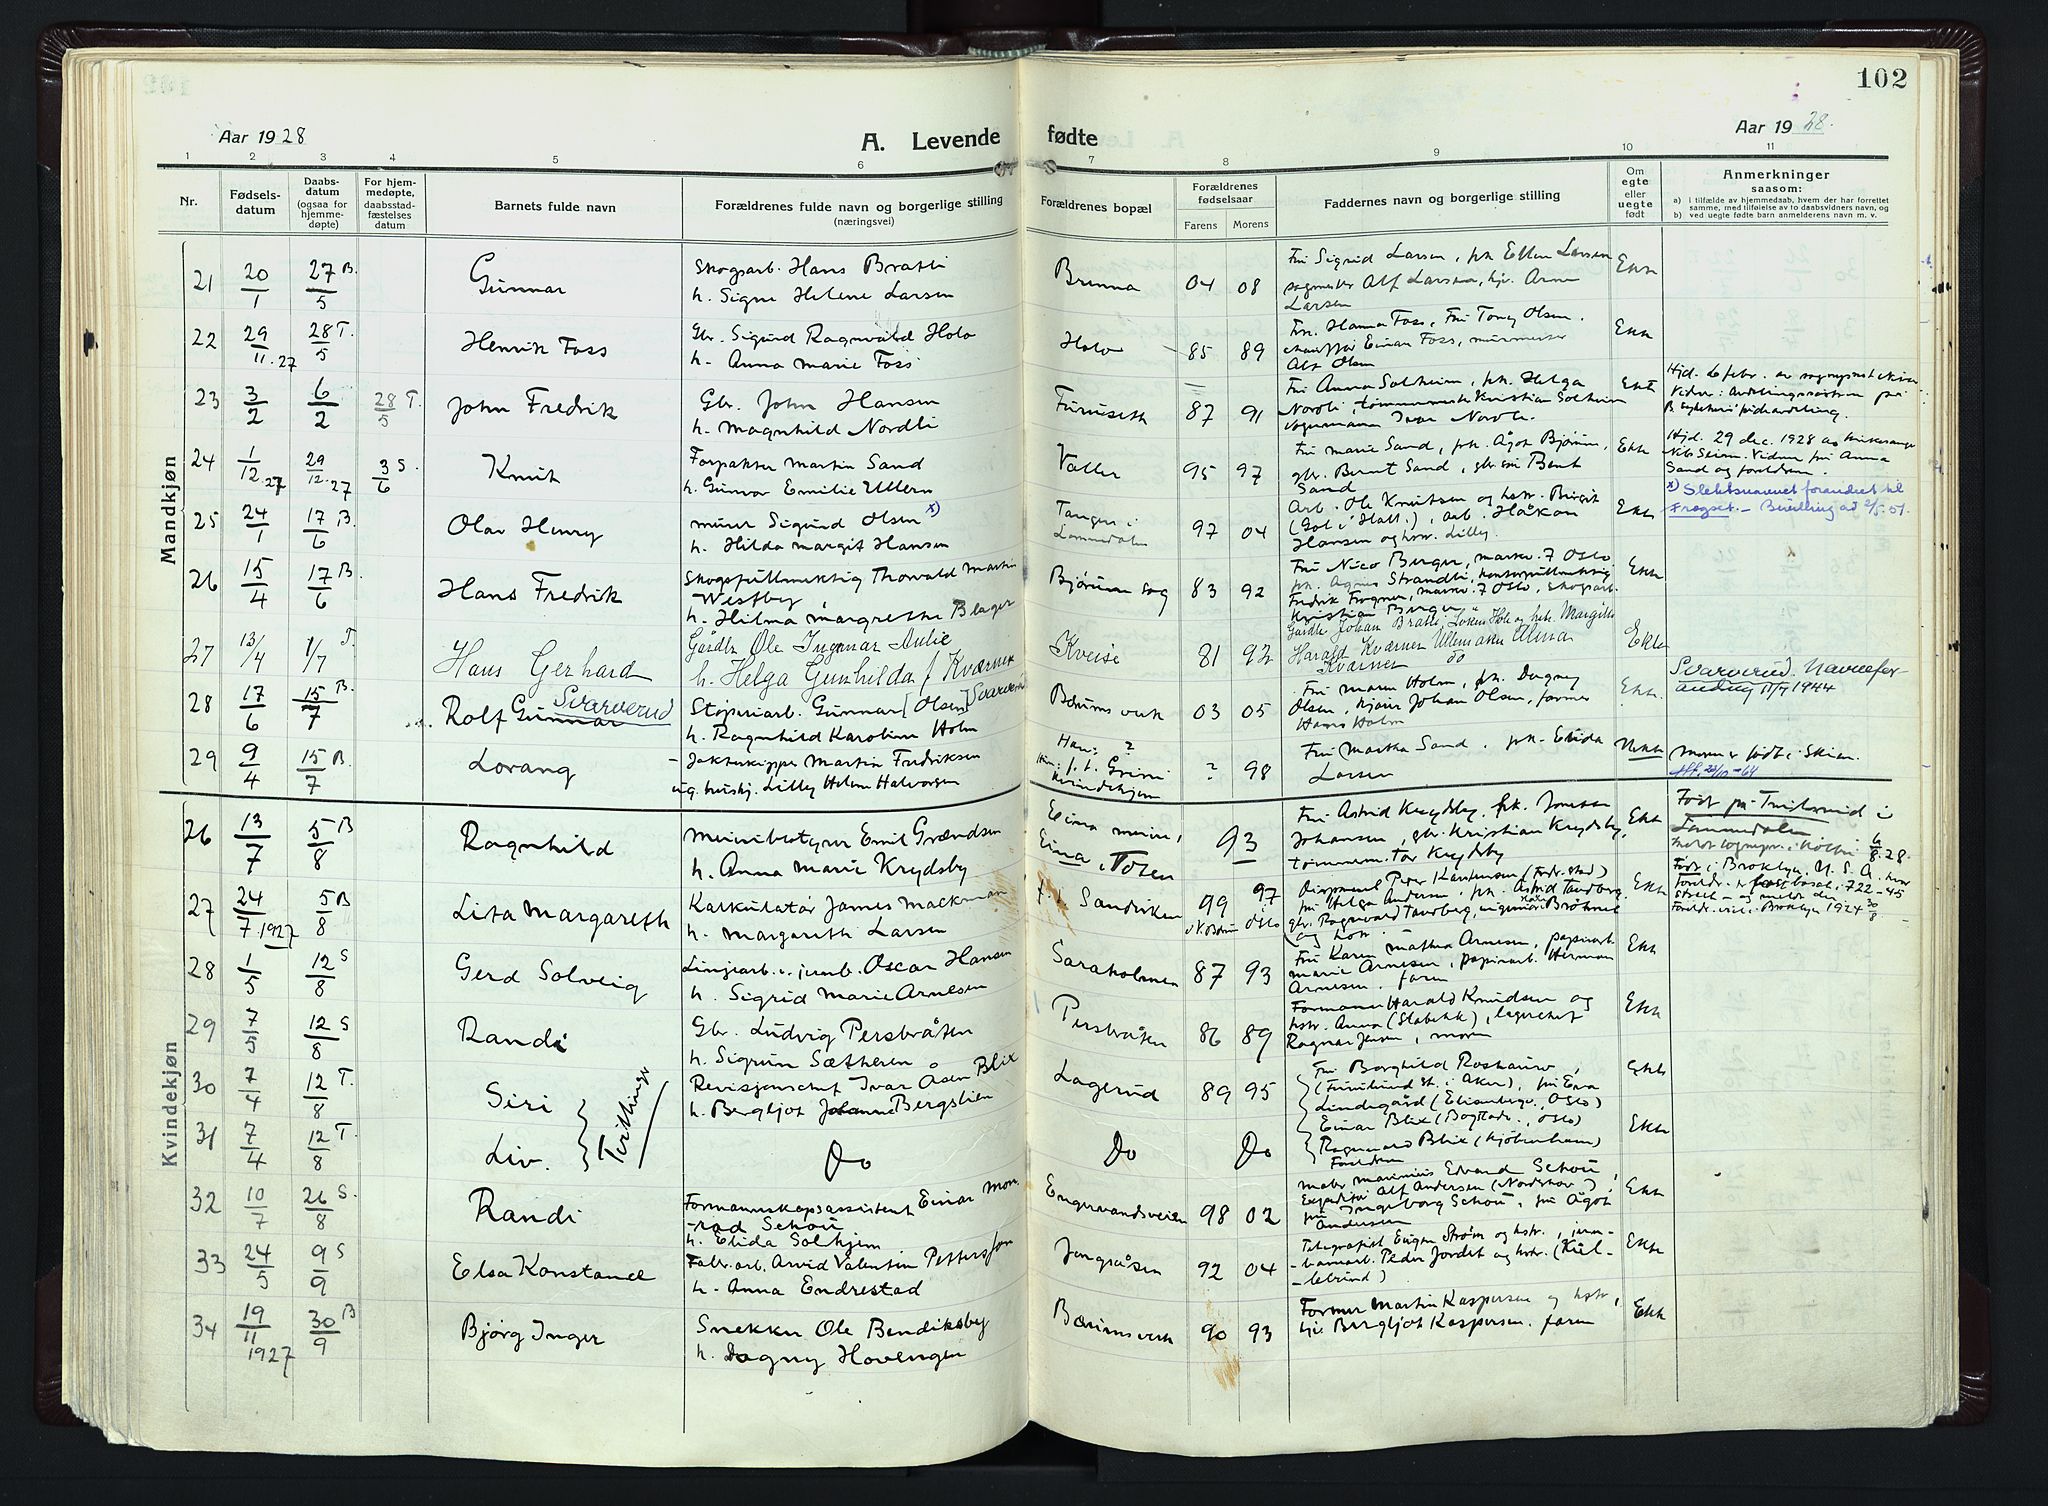 102
Aar 1928
A. Levende fødte
Aar 1928.
1 2 3 4 5 6 7 8 9 10 11
Nr.
Fødsels-
datum
Daabs-
datum
(ogsaa for
hjemme-
døpte)
For hjem-
medøpte,
daabsstad-
fæstelses
datum
Barnets fulde navn
Forældrenes fulde navn og borgerlige stilling
(næringsvei)
Forældrenes bopæl
Forældrenes
fødselsaar
Farens Morens
Faddernes navn og borgerlige stilling
Om
egte
eller
uegte
født
Anmerkninger
saasom:
a) i tilfælde av hjemmedaab, hvem der har forrettet
samme, med tilføielse av to daabsvidners navn, og
b) ved uegte fødte barn anmelderens navn m. v.
Mandkjøn
21 20/1 27/5 B. Gunnar
Skogsarb. Hans Bratli
h. Signe Helene Larsen
Brenna 04 08
Fru Sigrid Larsen, frk Ellen Larsen
sagmester Alf Larsen, hjv. Arne
Larsen
Ekte
22 29/11.27 28/5 T. Henrik Foss
Gbr. Sigurd Ragnvald Holo
h. Anna Marie Foss
Holo 85 89
Frk. Hanna Foss, Fru Tony Olsen.
chauffør Einar Foss, murmester
Alf Olsen
Ekte
23 3/2 6/2 28/5 T. John Fredrik
Gbr. John Hansen
h. Magnhild Nordli
Furuseth 87 91
Fru Anna Solheim, frk. Helga
Nordli, tømmermester Kristian Solheim
Ivar Nordli
Ekte
Hjd. 6 febr. av
24 1/12.27 29/12.27 3/6 S. Knut
Forpakter Martin Sand
h. Gunvor Emilie Ullern
Valler 95 97
Fru Marie Sand, frk. Ågot Bjørum,
gbr. Bernt Sand, gbr. Bent
Sand
Ekte
Hjd. 29 dec. 1928 av kirkesanger
Nils Seim. Vidner fru Anna
Sand og foreldrene.
25 24/1 17/6 B. Olav Henry
murer Sigurd Olsen x)
h. Hilda Margit Hansen
Tangen i
Lommedalen 97 04
Arb. Ole Knutsen og hstr. Birgit
(Gol i Hall.), arb. Håkon
Hansen og hstr. Lilly.
Ekte
x) Slektsnavnet forandret til
Frogset. – Bevilling ad 2/5.51.
26 15/4 17/6 B. Hans Fredrik
Skogsfullmektig Thorvald Martin
Westby
h. Hilma Margrethe Blager
Bjørum sag 83 92
Fru Nico Berger, markv. 7 Oslo
frk. Agnes Strandli, kontorfullmektig
Fredrik Frogner, markv. 7 Oslo, skogsarb.
Kristian Berger
Ekte
27 13/4 1/7 T. Hans Gerhard
Gårdbr Ole Ingmar Aulie
h. Helga Gunhilda f Kværner
Kveise 81 92
Gårdbr Johan Bratli, Løken Hole og hstr. Margitt
Harald Kværner Ullensaker Alma
Kværner do
Ekte
28 17/6 15/7 B. Rolf Gunnar Svarverud
Støperiarb. Gunnar [Olsen] Svarverud
h. Ragnhild Karoline Holm
Bærums verk 03 05
Fru Maren Holm, frk. Dagny
Olsen, hjv. Johan Olsen, former
Hans Holm
Ekte.
Svarverud. Navnefor-
andring 11/7 1944
29 9/4 15/7 B. Lorang
– Jakteskipper Martin Fredriksen
ug. hushj. Lilly Helene Halvorsen
Han: ?
Hun: f. t. Grini
kvindehjem ? 98
Fru Martha Sand, frk. Elida
Larsen
Uekte
moren er født i Skien.
Kvindekjøn
26 13/7 5/8 B Ragnhild
Minibestyrer Emil Grændsen
h. Anna Marie Krydsby
Eina meieri,
Eina, Toten 93
Fru Astrid Krydsby, frk. Jonette
Johansen, gbr. Kristian Krydsby,
tømmerm. Tor Krydsby
Ekte
Født på i
Lommedalen
6/8.28.
27 24/7 1927 5/8 B Lita Margareth
Kalkulatør James Mackman
h. Margareth Larsen
f. t. Sandviken 99 97
V. Bærum Oslo
Disponent Peder Kaspersen (Fredr.stad)
fru Helga Andersen, frk. Astrid Tandberg,
gbr. Ragnvald Tandberg, ingeniør Brøhner
og hstr.
Ekte
Født i Broklyn, U. S. A. hvor
Foreldr. er fast bosat, 722-45
street –
Foreldr. viet i Broklyn 1924 30/8
28 1/5 12/8 S Gerd Solveig
Linjearb. v. jernb. Oscar Hansen
h. Sigrid Marie Arnesen
Saraholmen 87 93
Fru Karen Mathea Arnesen, papirarb.
Marie Arnesen, papirarb. Herman
Arnesen. faren
Ekte
29 7/5 12/8 S Randi
Gbr. Ludvig Persbråten
h. Sigrun Sætheren
Persbråten 86 89
Formann Harald Knudsen og
hstr. Anna (Stabekk), lagerchef
Ragnar Jensen, moren
Ekte
30 7/4 12/8 T. Siri
Tvillinger
Revisjonschef Ivar Åsen Blix
h. Bergljot Johanne Bergslien
Lagerud 89 95
Fru Borghild Roshauw,
(Furulund st. i Aker), fru Eva
Lindegård (Elisenbergv., Oslo)
Ekte
31 7/4 12/8 T. Liv.
Do
Do Do
Einar Blix (Bogstadv., Oslo)
Ragnvald Blix (Kjøbenhavn)
Foreldrene
Ekte
32 10/7 26/8 S. Randi
Formannskapsassistent Einar Mon-
-rad Schou
h. Elida Solhjem
Engervandsveien 98 02
maler Marinius Edvard Schou,
Expeditør Alf Andersen (Nordstrand),
fru Ingeborg Schou, fru Ågot
Andersen
Ekte
33 24/5 9/9 S Elsa Konstance
Fabr.arb. Arvid Valentin Pettersson
h. Anna Endrestad
Jongsåsen 92 04
Telegrafist Eugen Strøm og hstr., jern-
-banearb. Peder Jordet og hstr. (Kjel-
-lstrand)
Ekte
34 19/11 1927 30/9 B Bjørg Inger
Snekker Ole Bendiksby
h. Dagny Hovengen
Bærums verk 90 93
Former Martin Kaspersen og hstr.,
hjv. Bergljot Kaspersen. faren
Ekte